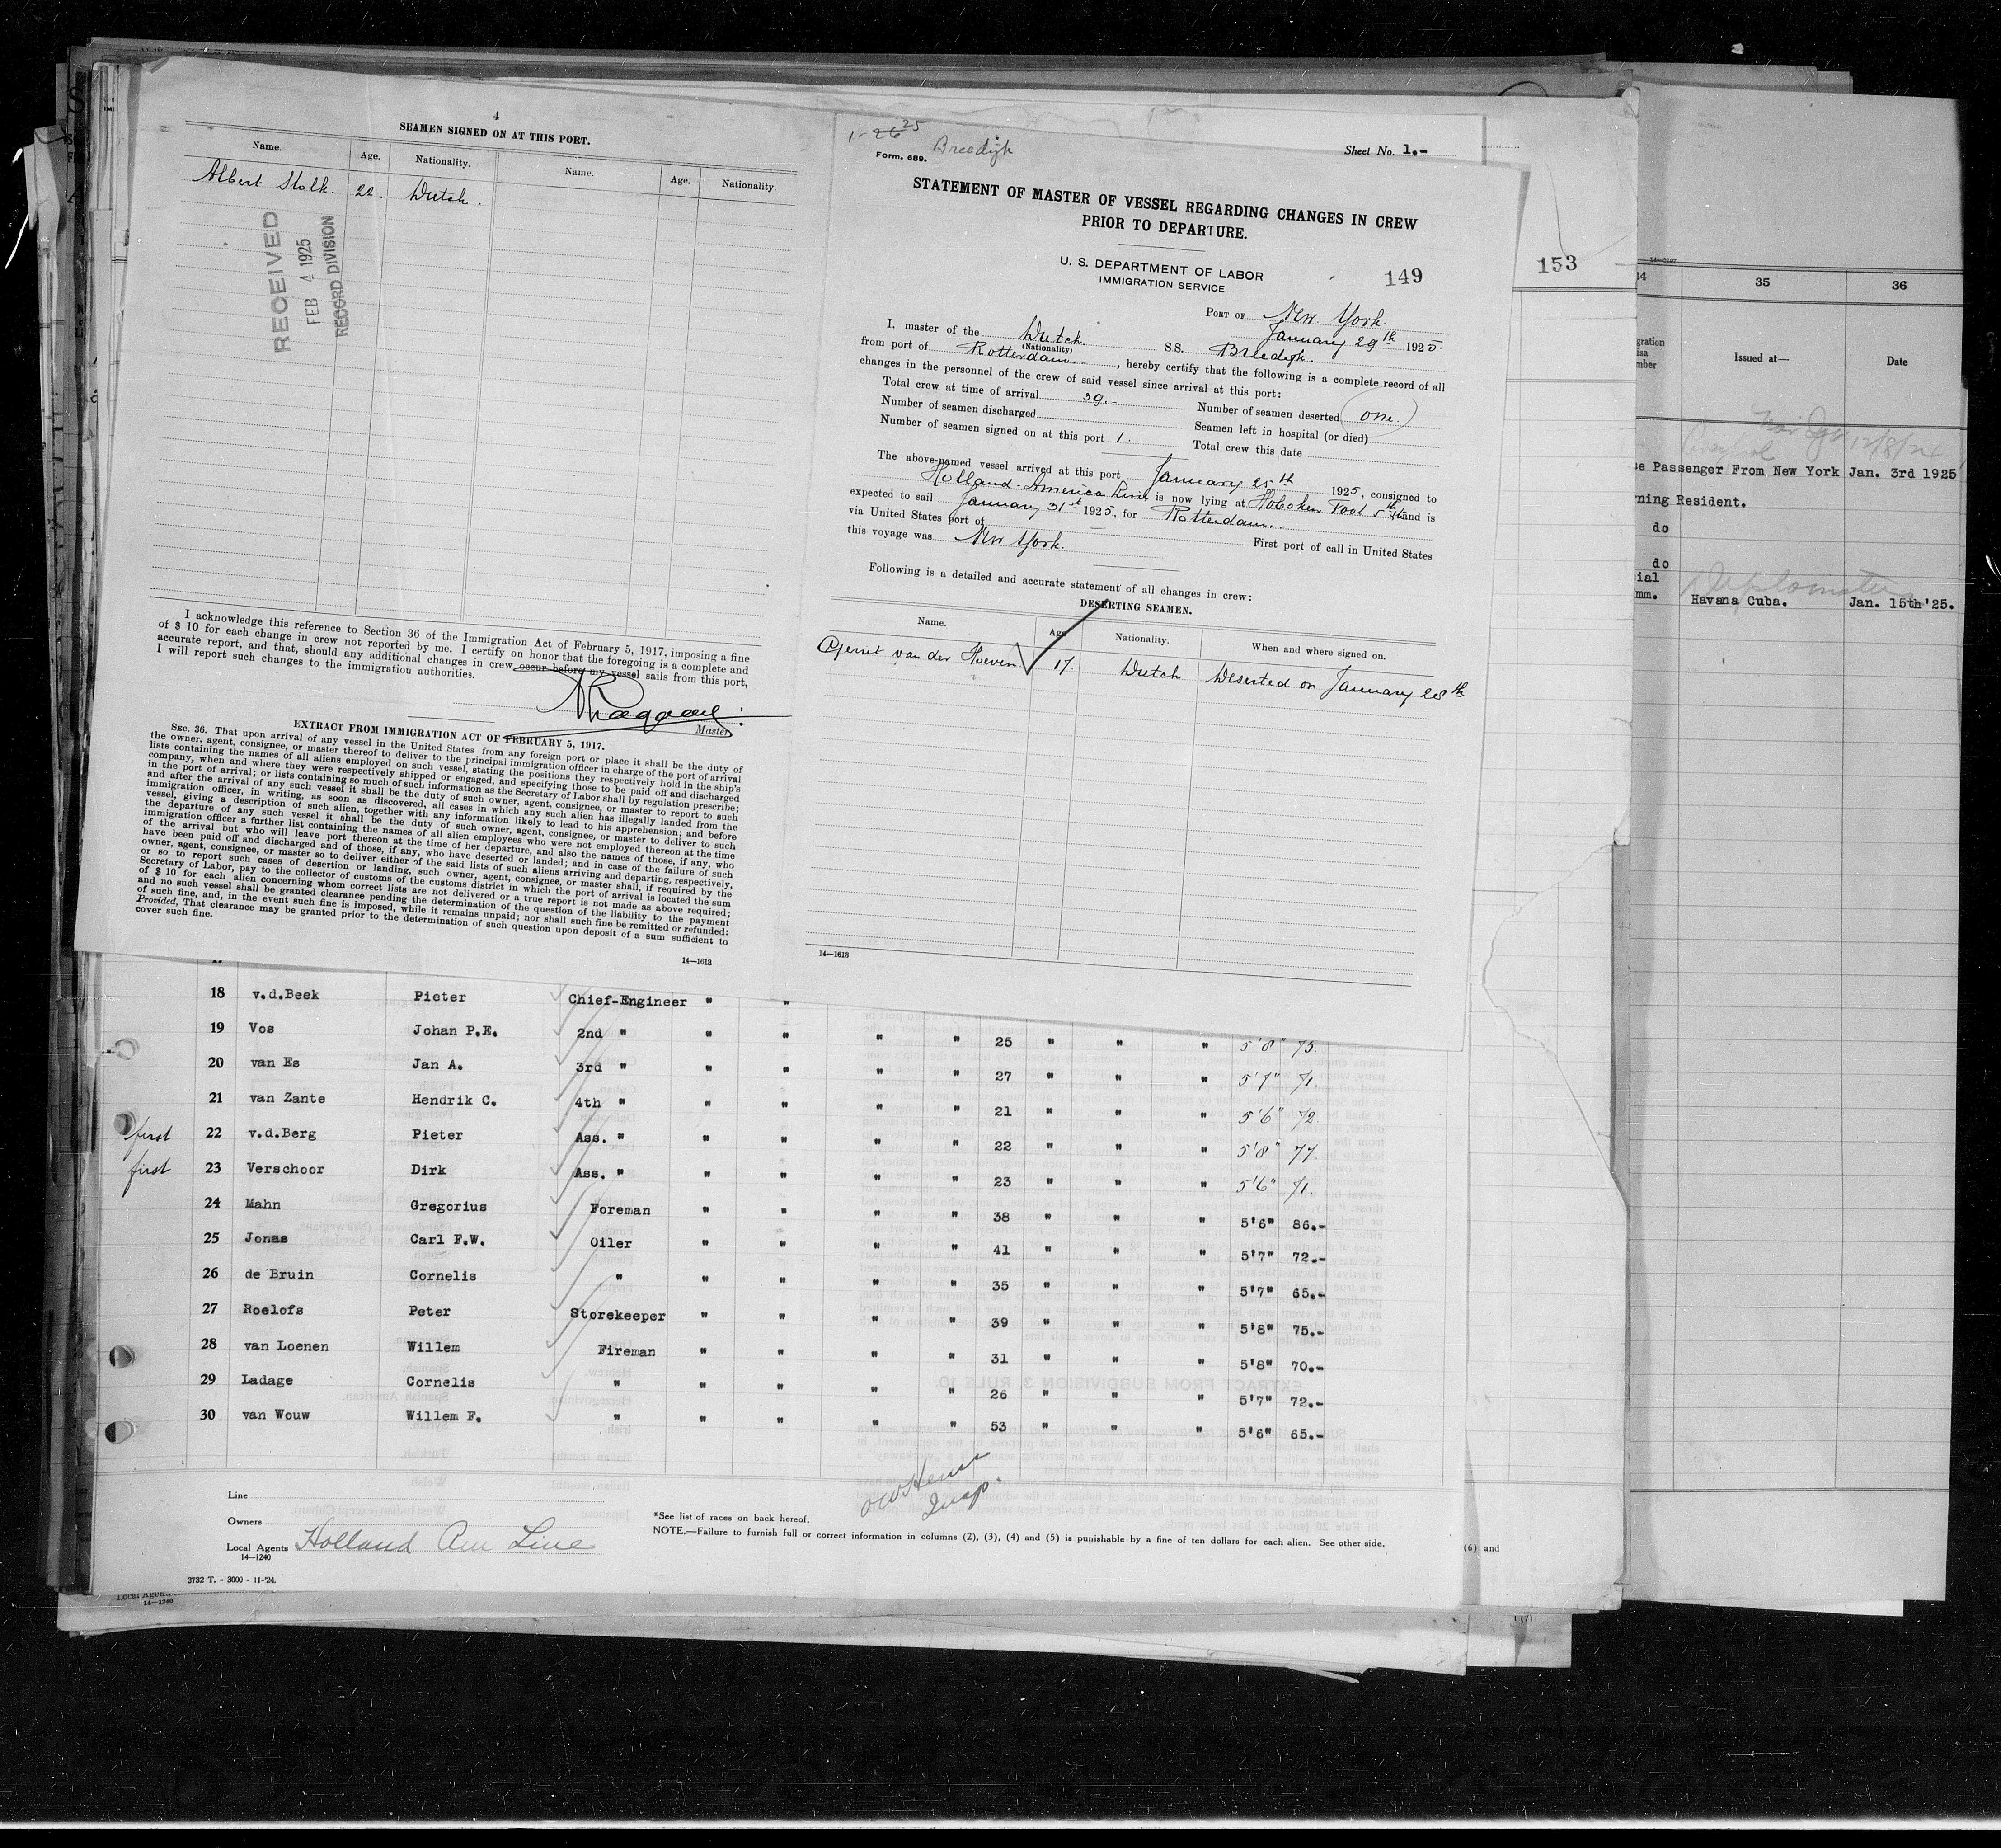 4
SEAMEN SIGNED ON AT THIS PORT.
Name. Age. Nationality. Name. Age. Nationality.
Albert Stolk. 22. Dutch.
RECEIVED
FEB 4 1925
RECORD DIVISION
I acknowledge this reference to Section 36 of the Immigration Act of February 5, 1917, imposing a fine
of $ 10 for each change in crew not reported by me. I certify on honor that the foregoing is a complete and
accurate report, and that, should any additional changes in crew occur before my vessel sails from this port,
I will report such changes to the immigration authorities.
Master
EXTRACT FROM IMMIGRATION ACT OF FEBRUARY 5, 1917.
SEC. 36. That upon arrival of any vessel in the United States from any foreign port or place it shall be the duty of
the owner, agent, consignee, or master thereof to deliver to the principal immigration officer in charge of the port of arrival
lists containing the names of all aliens employed on such vessel, stating the positions they respectively hold in the ship's
company, when and where they were respectively shipped or engaged, and specifying those to be paid off and discharged
in the port of arrival; or lists containing so much of such information as the Secretary of Labor shall by regulation prescribe;
and after the arrival of any such vessel it shall be the duty of such owner, agent, consignee, or master to report to such
immigration officer, in writing, as soon as discovered, all cases in which any such alien has illegally landed from the
vessel, giving a description of such alien, together with any information likely to lead to his apprehension; and before
the departure of any such vessel it shall be the duty of such owner, agent, consignee, or master to deliver to such
immigration officer a further list containing the names of all alien employees who were not employed thereon at the time
of the arrival but who will leave port thereon at the time of her departure, and also the names of those, if any, who
have been paid off and discharged and of those, if any, who have deserted or landed; and in case of the failure of such
owner, agent, consignee, or master so to deliver either of the said lists of such aliens arriving and departing, respectively,
or so to report such cases of desertion or landing, such owner, agent, consignee, or master shall, if required by the
Secretary of Labor, pay to the collector of customs of the customs district in which the port of arrival is located the sum
of $ 10 for each alien concerning whom correct lists are not delivered or a true report is not made as above required;
and no such vessel shall be granted clearance pending the determination of the question of the liability to the payment
of such fine, and, in the event such fine is imposed, while it remains unpaid; nor shall such fine be remitted or refunded:
Provided, That clearance may be granted prior to the determination of such question upon deposit of a sum sufficient to
cover such fine.
14—1613
1-26 25
Breedijk
Form. 689.
Sheet No. 1.-
STATEMENT OF MASTER OF VESSEL REGARDING CHANGES IN CREW
PRIOR TO DEPARTURE.
U. S. DEPARTMENT OF LABOR
IMMIGRATION SERVICE
149
PORT OF New York.
January 29th 1925.
I, master of the Dutch SS. Breedijk.
(Nationality)
from port of Rotterdam.-, hereby certify that the following is a complete record of all
changes in the personnel of the crew of said vessel since arrival at this port:
Total crew at time of arrival 39.- Number of seamen deserted (one.)
Number of seamen discharged Seamen left in hospital (or died)
Number of seamen signed on at this port 1. Total crew this date
The above-named vessel arrived at this port January 25th 1925, consigned to
Holland-America Line is now lying at Hoboken Foot 5th st and is
expected to sail January 31st 1925, for Rotterdam.-
via United States port of
this voyage was New York. First port of call in United States
Following is a detailed and accurate statement of all changes in crew:
DESERTING SEAMEN.
Name. Age Nationality. When and where signed on.
Gerret van der Hoeven 17. Dutch Deserted on January 28th
14—1613
153
14—3197
34 35 36
Issued at— Date
12/8/24
se Passenger From New York Jan. 3rd 1925
rning Resident.
do
do
ial
mm. Havana Cuba. Jan. 15th'25.
Diplomatic
18 v.d.Beek Pieter Chief-Engineer " "
19 Vos Johan P.E. 2nd " " " " " 25 " " " 5'8" 75.
20 van Es Jan A. 3rd " " " " " 27 " " " 5'7" 71.
21 van Zante Hendrik C. 4th " " " " " 21 " " " 5'6" 72.
first 22 v.d.Berg Pieter Ass. " " " " " 22 " " " 5'8" 77.
first 23 Verschoor Dirk Ass. " " " " " 23 " " " 5'6" 71.
24 Mahn Gregorius Foreman " " " " 38 " " " 5'6" 86.-
25 Jonas Carl F.W. Oiler " " " " 41 " " " 5'7" 72.-
26 de Bruin Cornelis " " " " " 35 " " " 5'7" 65.-
27 Roelofs Peter Storekeeper " " " " 39 " " " 5'8" 75.-
28 van Loenen Willem Fireman " " " " 31 " " " 5'8" 70.-
29 Ladage Cornelis " " " " " 26 " " " 5'7" 72.-
30 van Wouw Willem F. " " " " " 53 " " " 5'6" 65.-
Insp.
Line
Owners
Local Agents Holland Am Line
14—1240
3732 T. - 3000 - 11-'24.
*See list of races on back hereof.
NOTE.—Failure to furnish full or correct information in columns (2), (3), (4) and (5) is punishable by a fine of ten dollars for each alien. See other side.
(6) and
Local Agen
14—1240